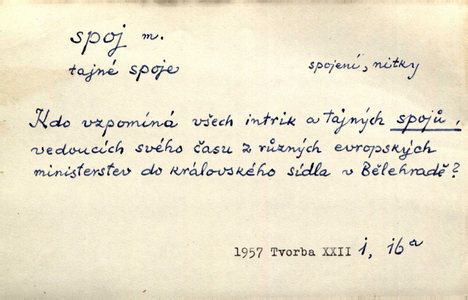 spoj m.
tajné spoje
spojení, nitky
Kdo vzpomíná všech intrik a tajných spojů,
vedoucích svého času z různých evropských
ministerstev do královského sídla v Bělehradě?
1957 Tvorba XXII 1, 16a